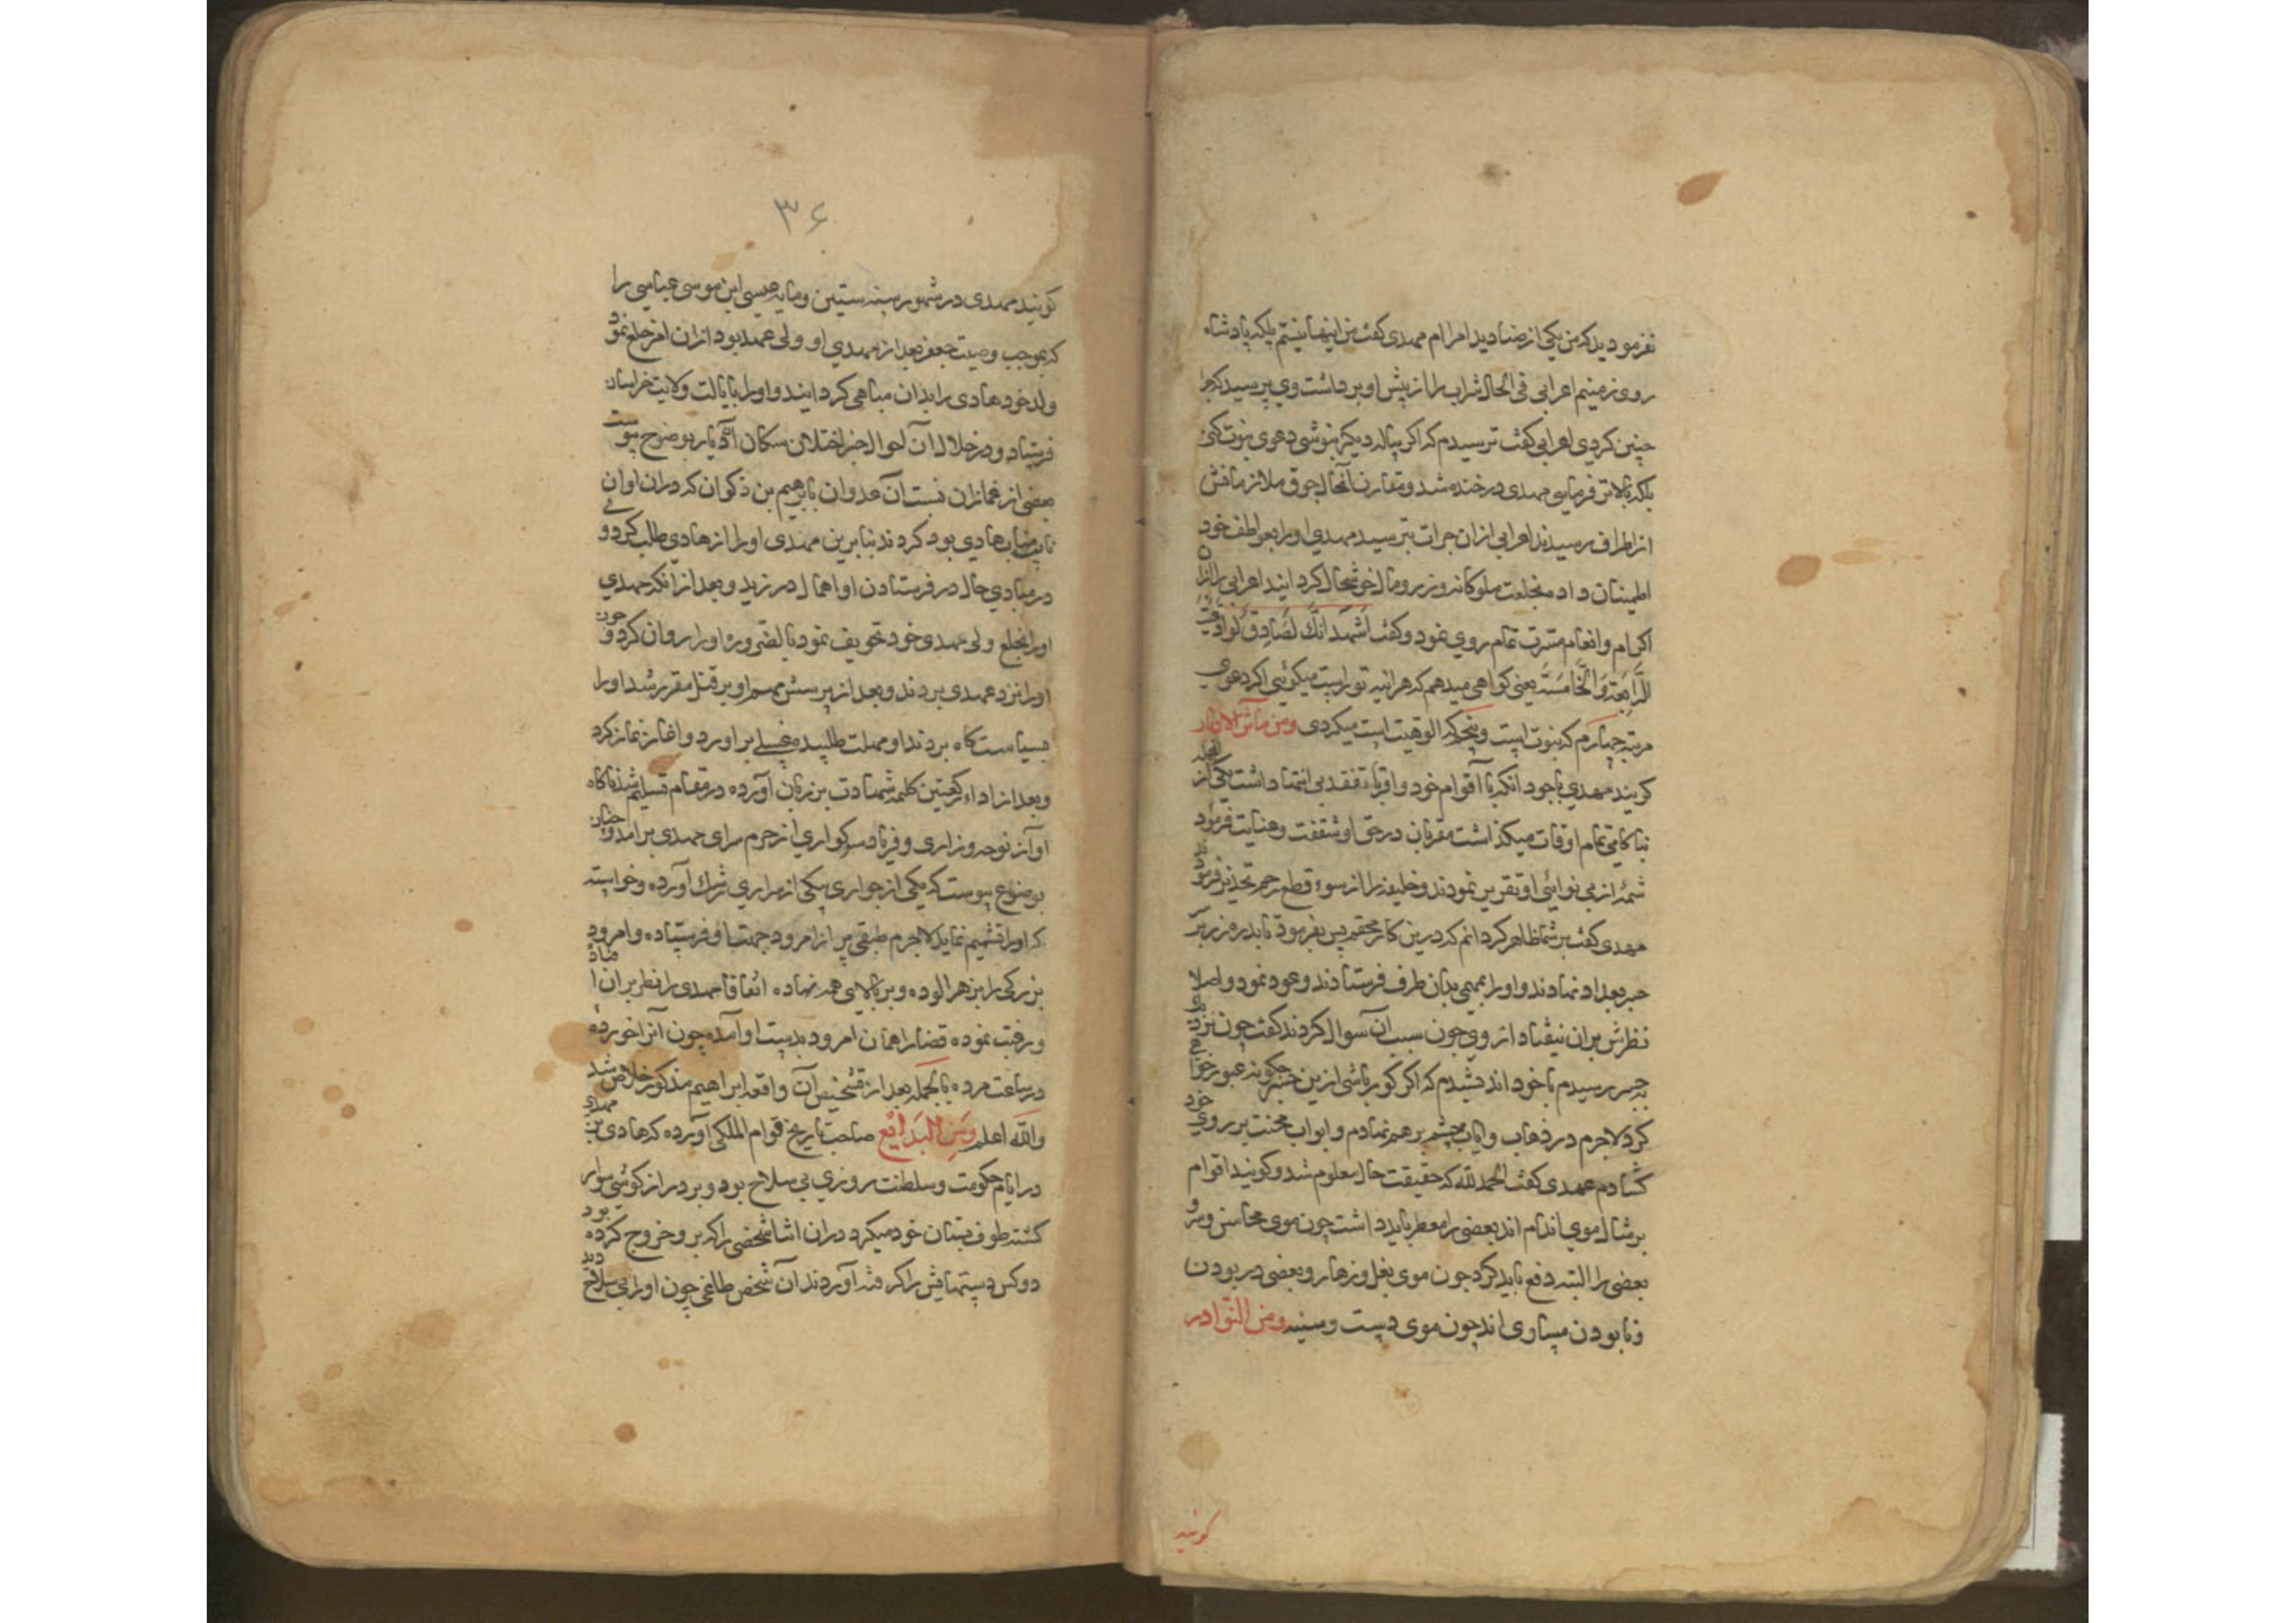 نفرمودید که من یکی از صنادید امراام مهدی کفت من اینها نیستم بلکه پادشاه
روی زمینم اعرابی فی الحال شراب را از پیش او برداشت وی پرسید که چرا
چنین کردی اعرابی کفت ترسیدم که اکر پیاله دیکر بنوشی دعوی نبوت کنی
بلکه بالاتر فرمایی مهدی در خنده شد و مقارن آنحال جوق ملازمانش
از اطراف رسیدند اعرابی ازان جرات بترسید مهدی او را بعواطف خود
اطمینان داد و بخلعت ملوکانه و زر و مال خوشحال کردانید اعرابی را ازان
اکرام و انعام مسرت تمام روی نمود و کفت اشهد انک لصادق لو ادعیت
الرابعة والخامسة یعنی کواهی میدهم که هرآینه تو راست میکوئی اکر دعوی
مرتبه چهارم که نبوت است و پنجم که الوهیت است میکردی ومن مآثر الآثار
کویند مهدی باجود انکه با اقوام خود و اقرباء تفقد بی انتها داشت یکی از انجمله
بناکامی تمام اوقات میکذاشت مقربان در حق او شفقت و عنایت فرموده
شمه از بی نوائی او تقریر نمودند و خلیفه را از سوء قطع رحم تحذیر فرمودند
مهدی کفت بر شما ظاهر کردانم که درین کار محقم پس بفرمود تا بدره زر بر سر
جسر بغداد نهادند و او را بمهمی بدان طرف فرستادند و عود نمود و اصلا
نظرش بران نیفتاد از وی چون سبب آن سوال کردند کفت چون نزدیک
به جسر رسیدم با خود اندیشیدم که اکر کور باشی ازین جسر چکونه عبور خواهی
کرد لاجرم در ذهاب و ایاب چشم برهم نهادم و ابواب محنت بر روی خود
کشادم مهدی کفت الحمد لله که حقیقت حال معلوم شد و کویند اقوام
بر مثال موی اندام اند بعضی را معطر باید داشت چون موی محاسن و سر و
بعضی را البته دفع باید کرد چون موی بغل و زهار و بعضی در بودن
و نابودن مساوی اند چون موی دست و سینه ومن النوادر
کویند
۳۶
کویند مهدی در شهور سنه ستین و مایه عیسی ابن موسی عباسی را
که بموجب وصیت جعفر بعد از مهدی او ولی عهد بود ازان امر خلع نمود
ولد خود هادی را بدان مباهی کردانید و او را بایالت ولایت خراسان
فرستاد و در خلال آن احوال خبر اختلال سکان آن دیار بوضوح پیوست
بعضی از غمازان نسبت آن عدوان بابرهیم بن ذکوان که دران اوان
نایب مناب هادی بود کردند بنابرین مهدی او را از هادی طلب کرد و وی
در مبادی حال در فرستادن او اهمال درزید و بعد از آنکه مهدی
او را بخلع ولی عهدی خود تخویف نمود بالضروره او را روان کرد و چون
او را نزد مهدی بردند و بعد از پرسش مهم او بر قتل مقرر شد او را
بسیاست کاه بردند او مهلت طلبیده غسلی براورد و اغاز نماز کرد
و بعد از اداء رکعتین کلمه شهادت بر زبان آورده در مقام تسلیم شد ناکاه
اواز نوحه و زاری و فریاد سوکواری از حرم سرای مهدی برامد و چنان
بوضوح پیوست که یکی از جواری یکی از سراری شرک آورده و خواسته
که او را تسمیم نماید لاجرم طبقی پر از امرود جهت او فرستاده و امرود
بزرکی را بزهر الوده و بر بالای همه نهاده اتفاقا مهدی را نظر بران افتاد
و رغبت نموده قضا را همان امرود بدست او آمده چون آنرا خورده
در ساعت مرده بالجمله بعد از تشخیص آن واقعه ابراهیم مذکور خلاص شد
والله اعلم ومن البدائع صاحب تاریخ قوام الملکی آورده که هادی بن مهدی
در ایام حکومت و سلطنت روزی بی سلاح بود و بر دراز کوشی سوار
کشته طوف بستان خود میکرد دران اثنا شخصی را که برو خروج کرده بود
دو کس دستهایش را کرفته آوردند آن شخص طاغی چون او را بی سلاح دید